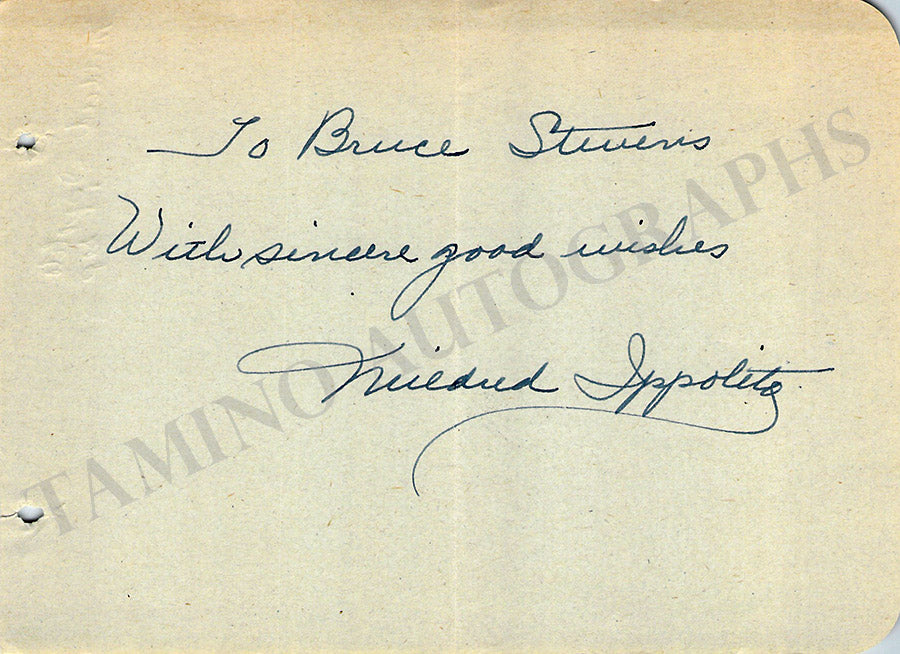 To Bruce Stevens
With sincere good wishes
Mildred Ippolito
TAMINO AUTOGRAPHS